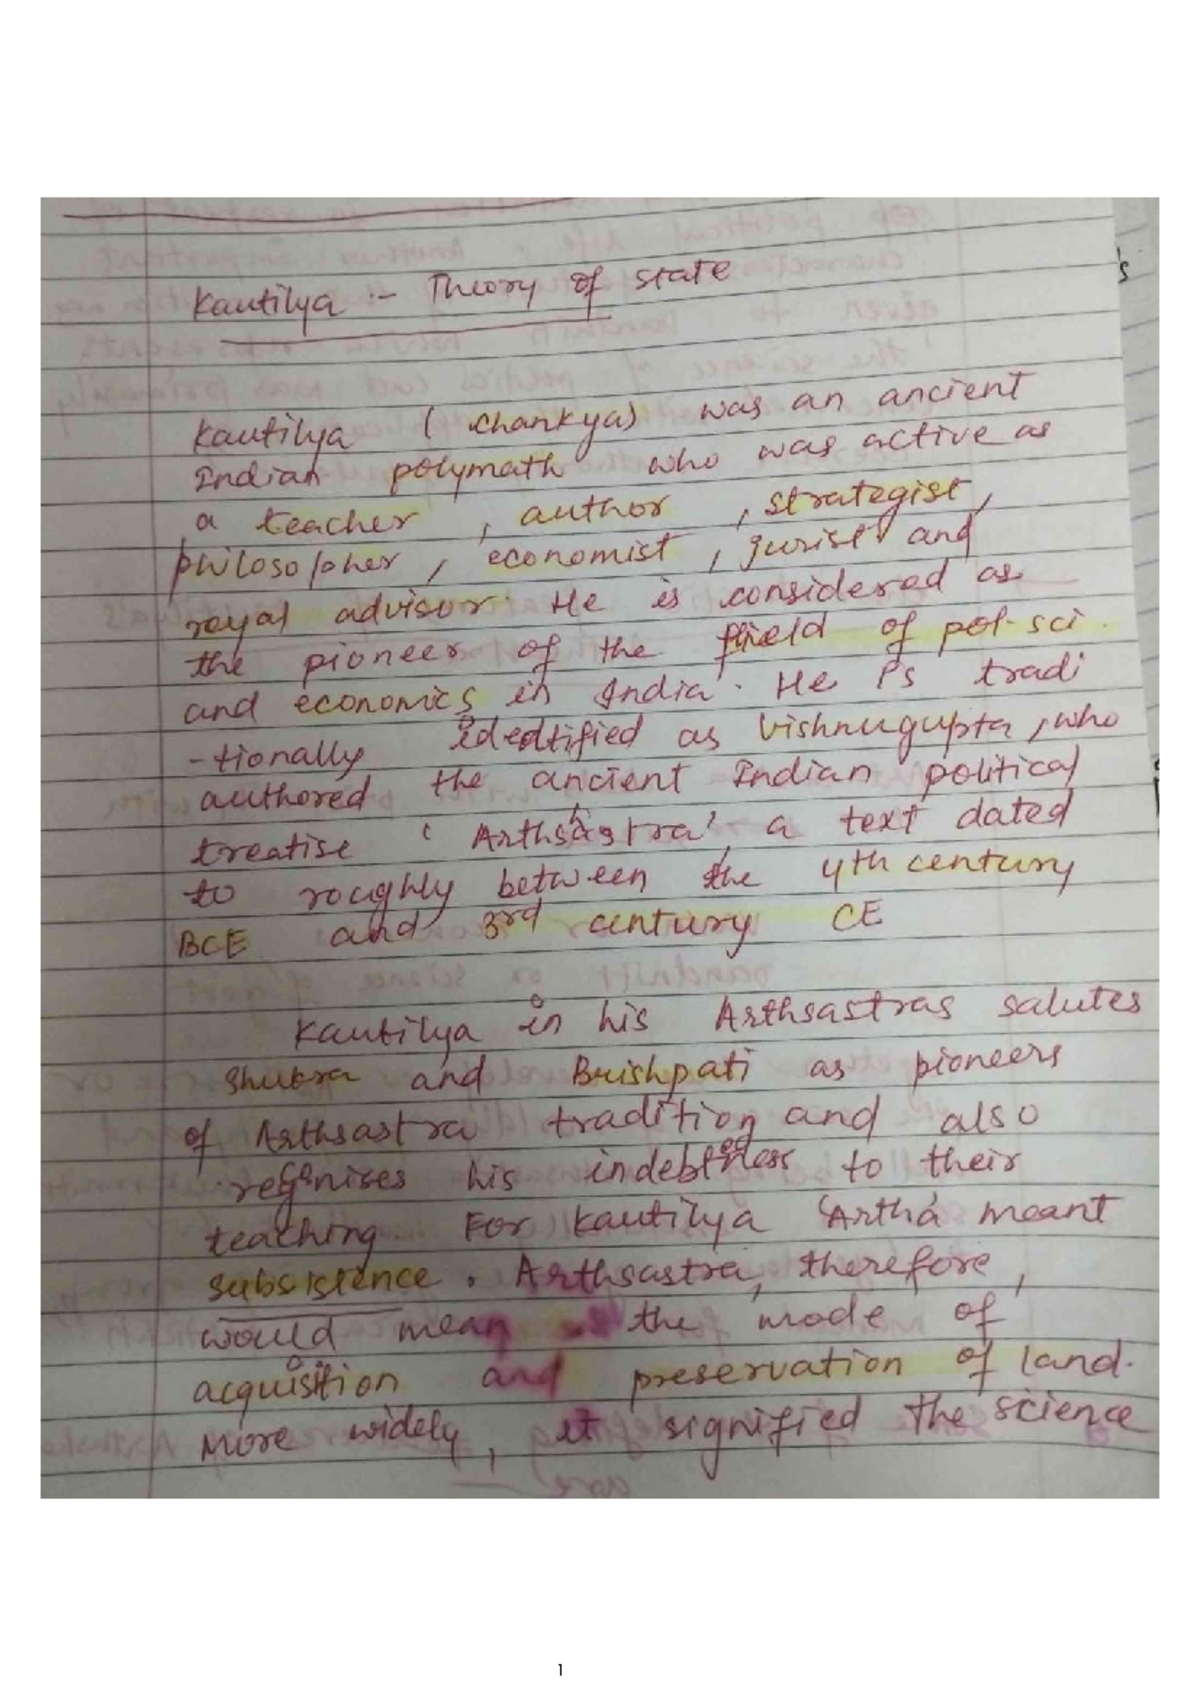 Kautilya :- Theory of state
Kautilya (chankya) was an ancient
Indian polymath who was active as
a teacher, author, strategist,
philosopher, economist, jurist and
royal advisor. He is considered as
the pioneer of the field of pol. sci.
and economics in India. He is tradi
-tionally identified as Vishnugupta, who
authored the ancient Indian political
treatise 'Arthsastra', a text dated
to roughly between the 4th century
BCE and 3rd century CE
Kautilya in his Arthsastras salutes
Shukra and Brishpati as pioneers
of Arthsastra tradition and also
recognises his indebtness to their
teaching. For Kautilya 'Artha' meant
subsistence. Arthsastra, therefore,
would mean the mode of
acquisition and preservation of land.
More widely, it signified the science
1